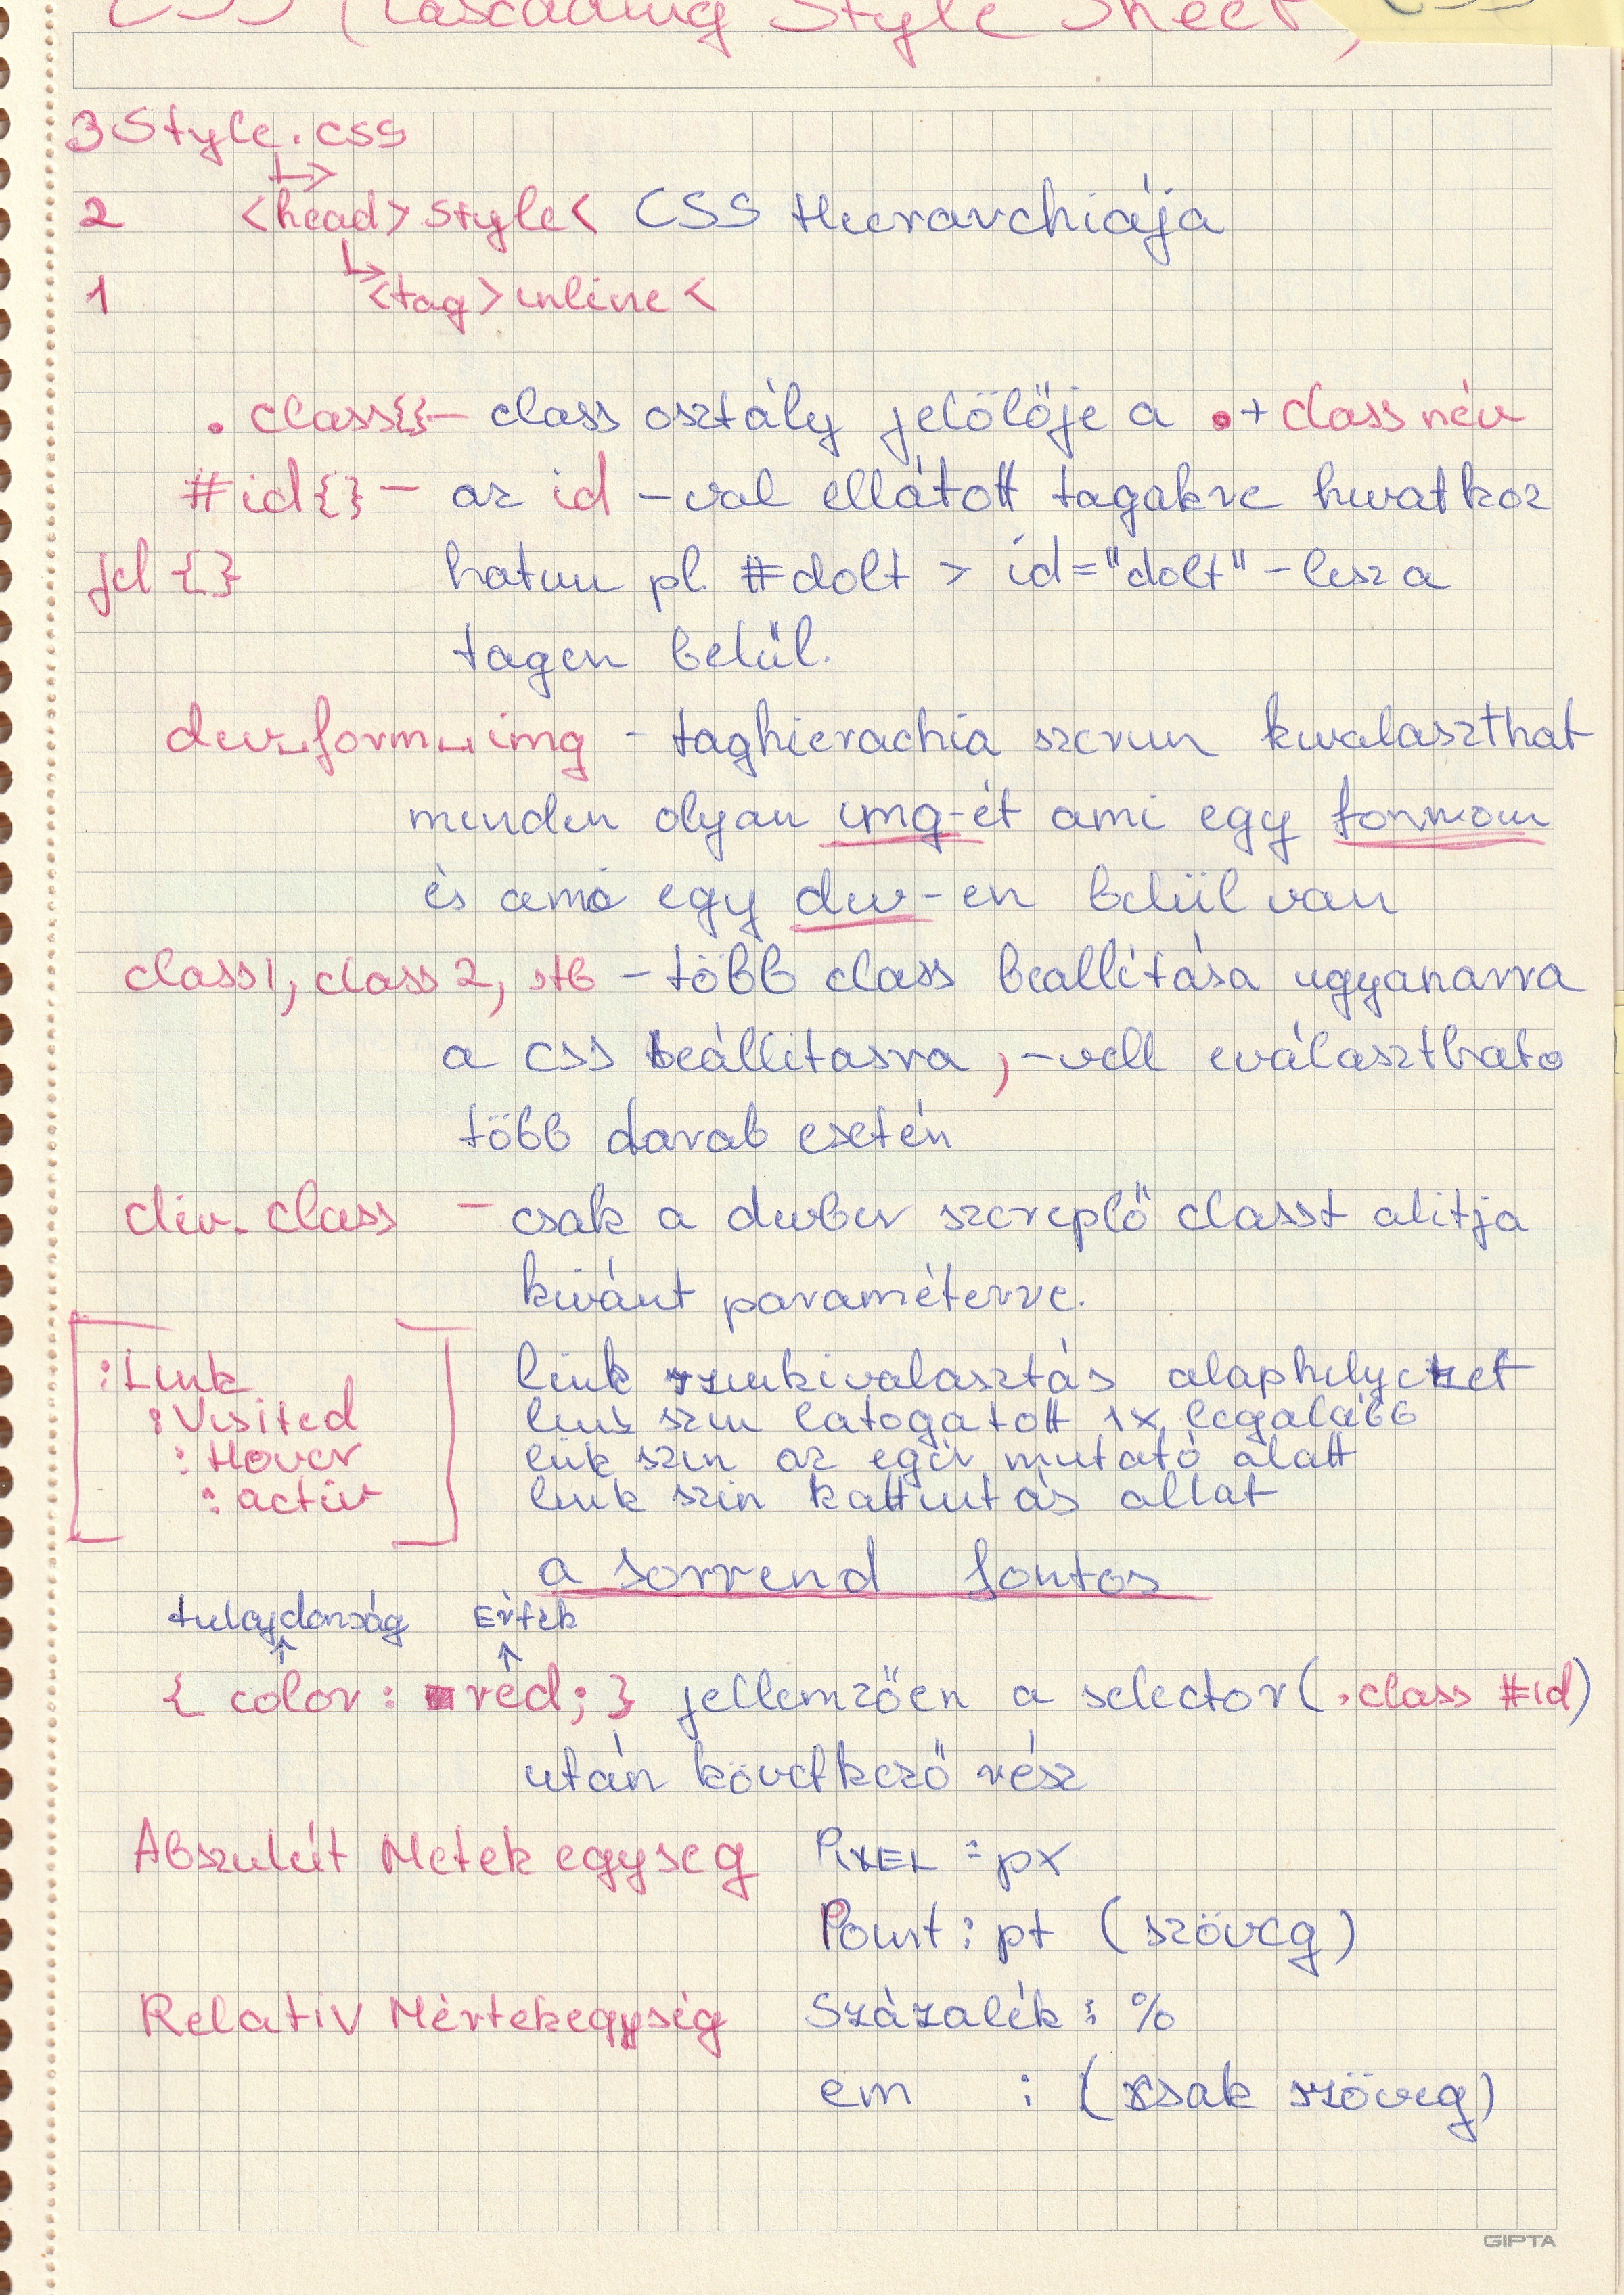 CSS (Cascading Style Sheet)
CSS
3 Style.css
2 <head> style < CSS Hierarchiája
1 <tag> inline <
. class{} – class osztály jelölője a . + class név
#id{} – az id -val ellátott tagakre hivatkoz
jel {} hatun pl. #dolt > id="dolt" – lesz a
tagen belül.
div␣form␣img - taghierachia szerun kivalaszthat
minden olyan img-ét ami egy formon
és ami egy div-en belül van
class1, class2, stb – több class beallítása ugyanarra
a css beállitasra , -vell eválaszthato
több darab esetén
div.class – csak a divben szereplő classt alitja
kivánt paraméterre.
:Link link szinkivalasztás alaphelyczet
:Visited link szin latogatott 1x legalább
:Hover link szin az egér mutató alatt
:activ link szin kattintás allat
a sorrend fontos
tulajdonság Érték
{ color: red; } jellemzően a selector(.class #id)
után következő rész
Abszulút Metek egyseg PIXEL : px
Point : pt (szöveg)
Relativ Mértekegység Százalék : %
em : (csak szöveg)
GIPTA